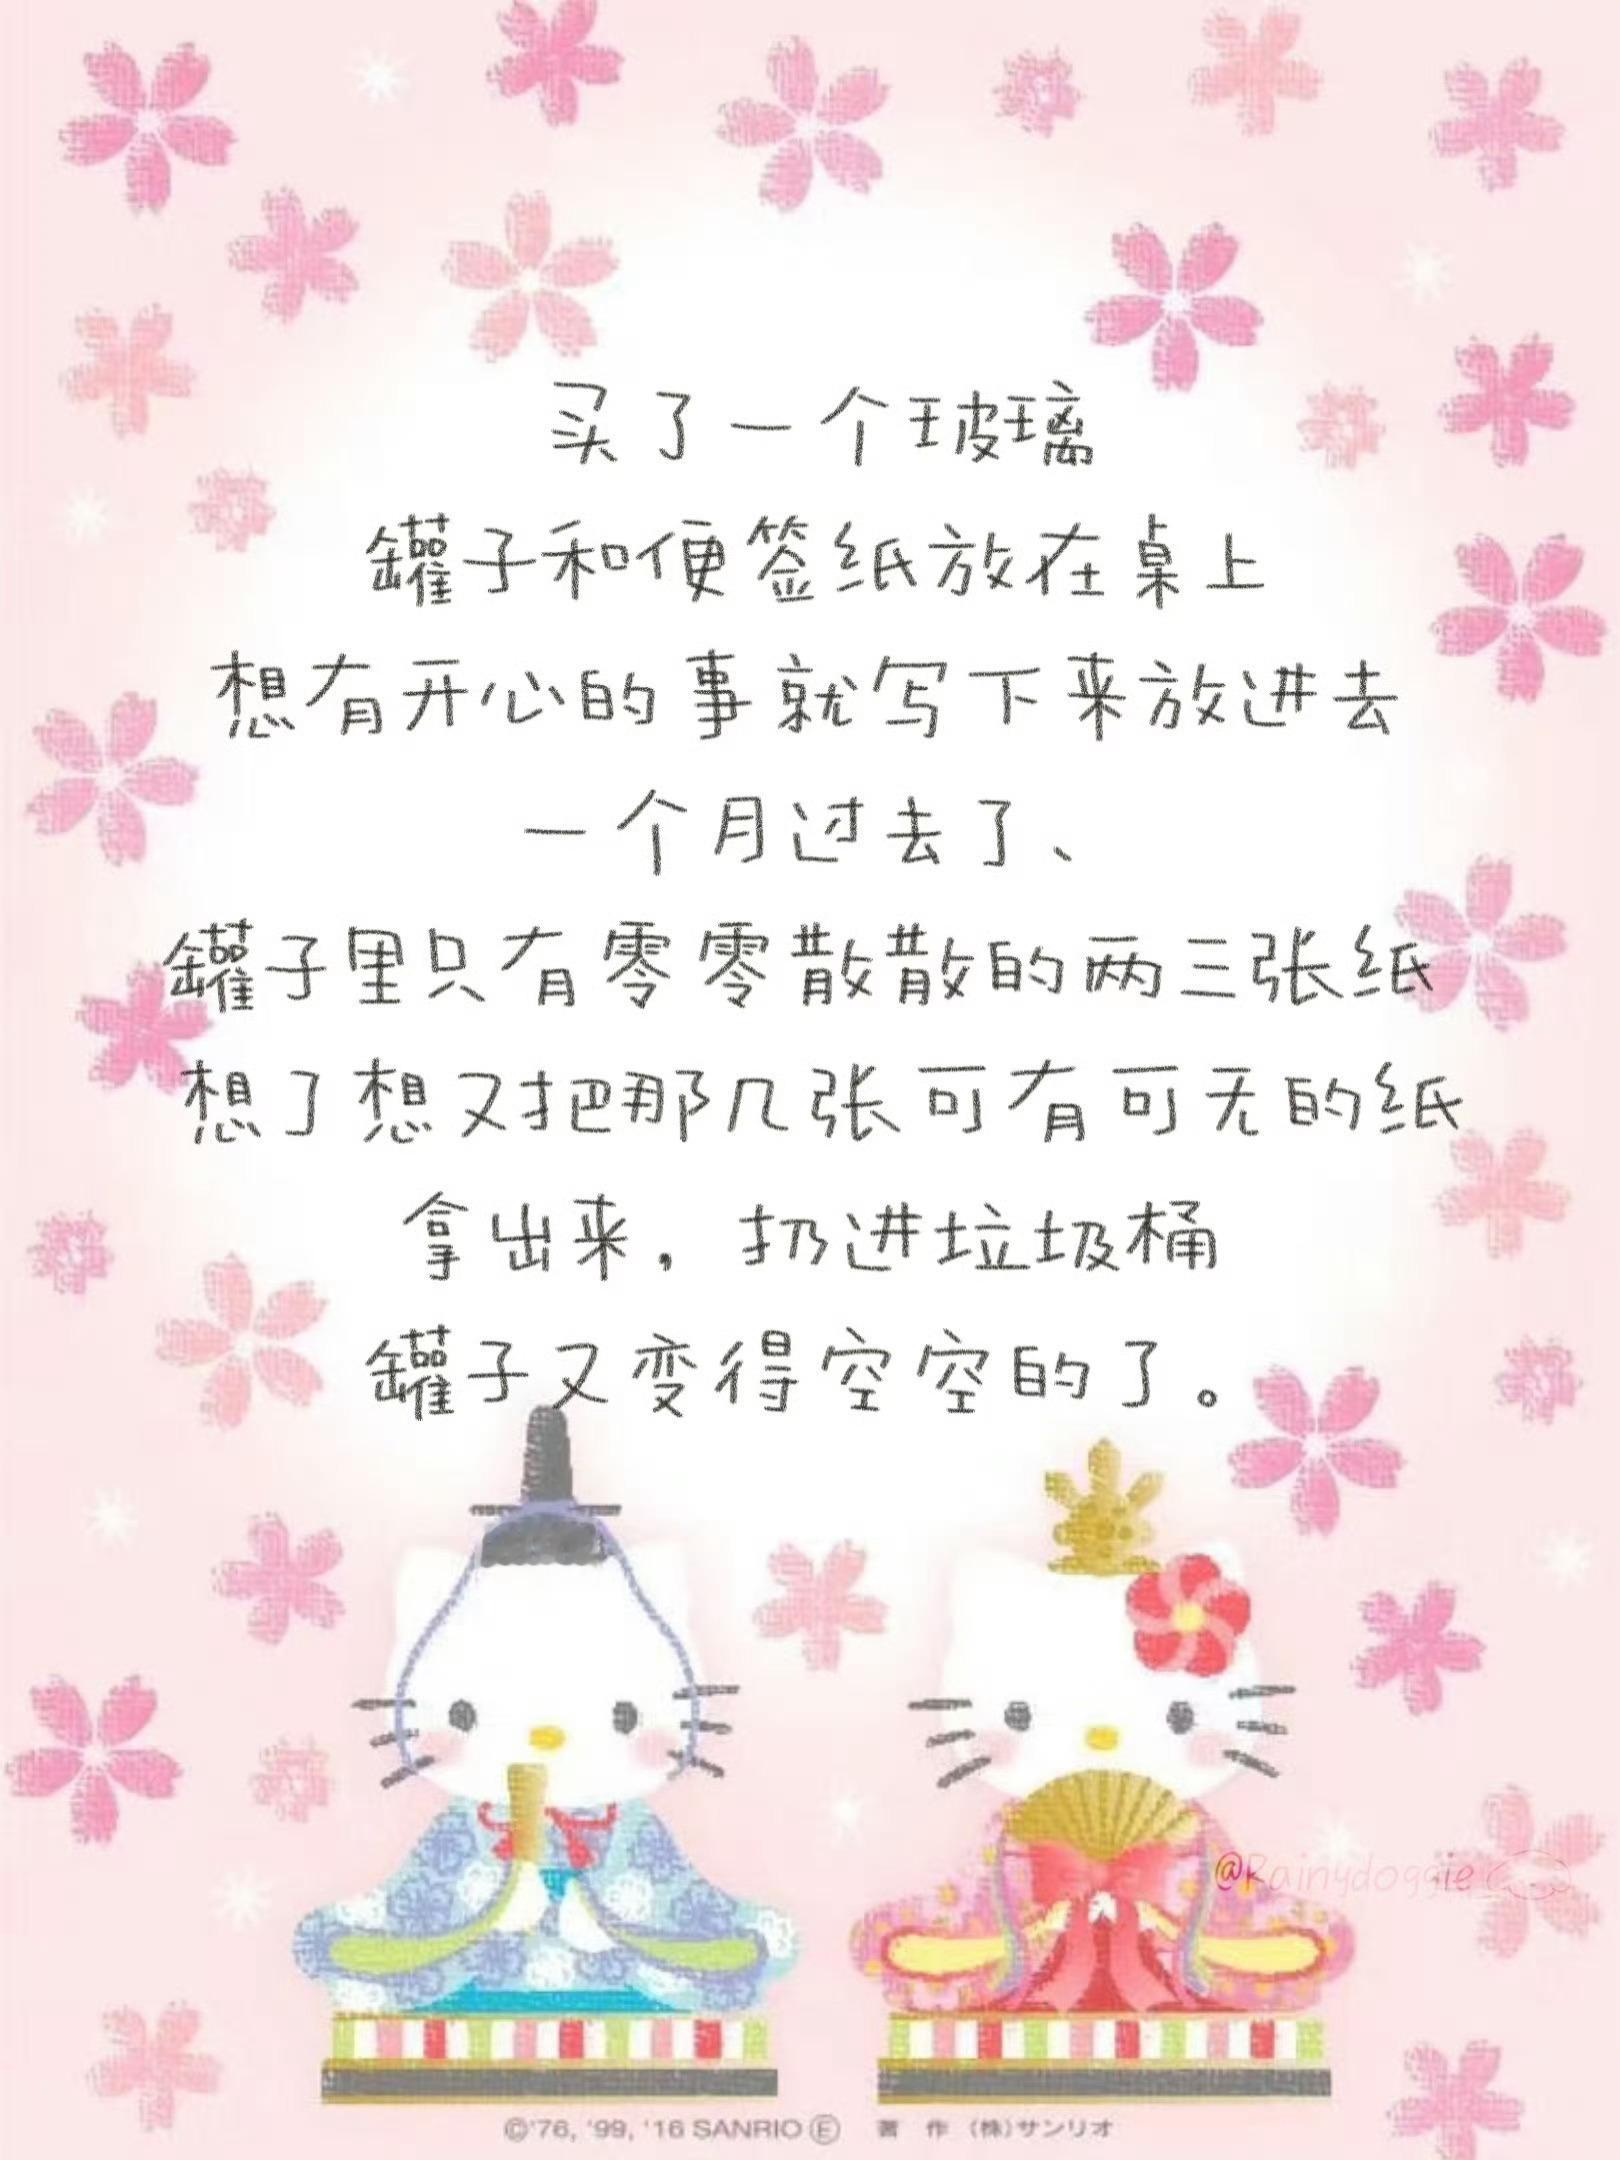 买了一个玻璃
罐子和便签纸放在桌上
想有开心的事就写下来放进去
一个月过去了、
罐子里只有零零散散的两三张纸
想了想又把那几张可有可无的纸
拿出来，扔进垃圾桶
罐子又变得空空的了。
@Rainydoggie
©'76, '99, '16 SANRIO Ⓔ 著作(株)サンリオ